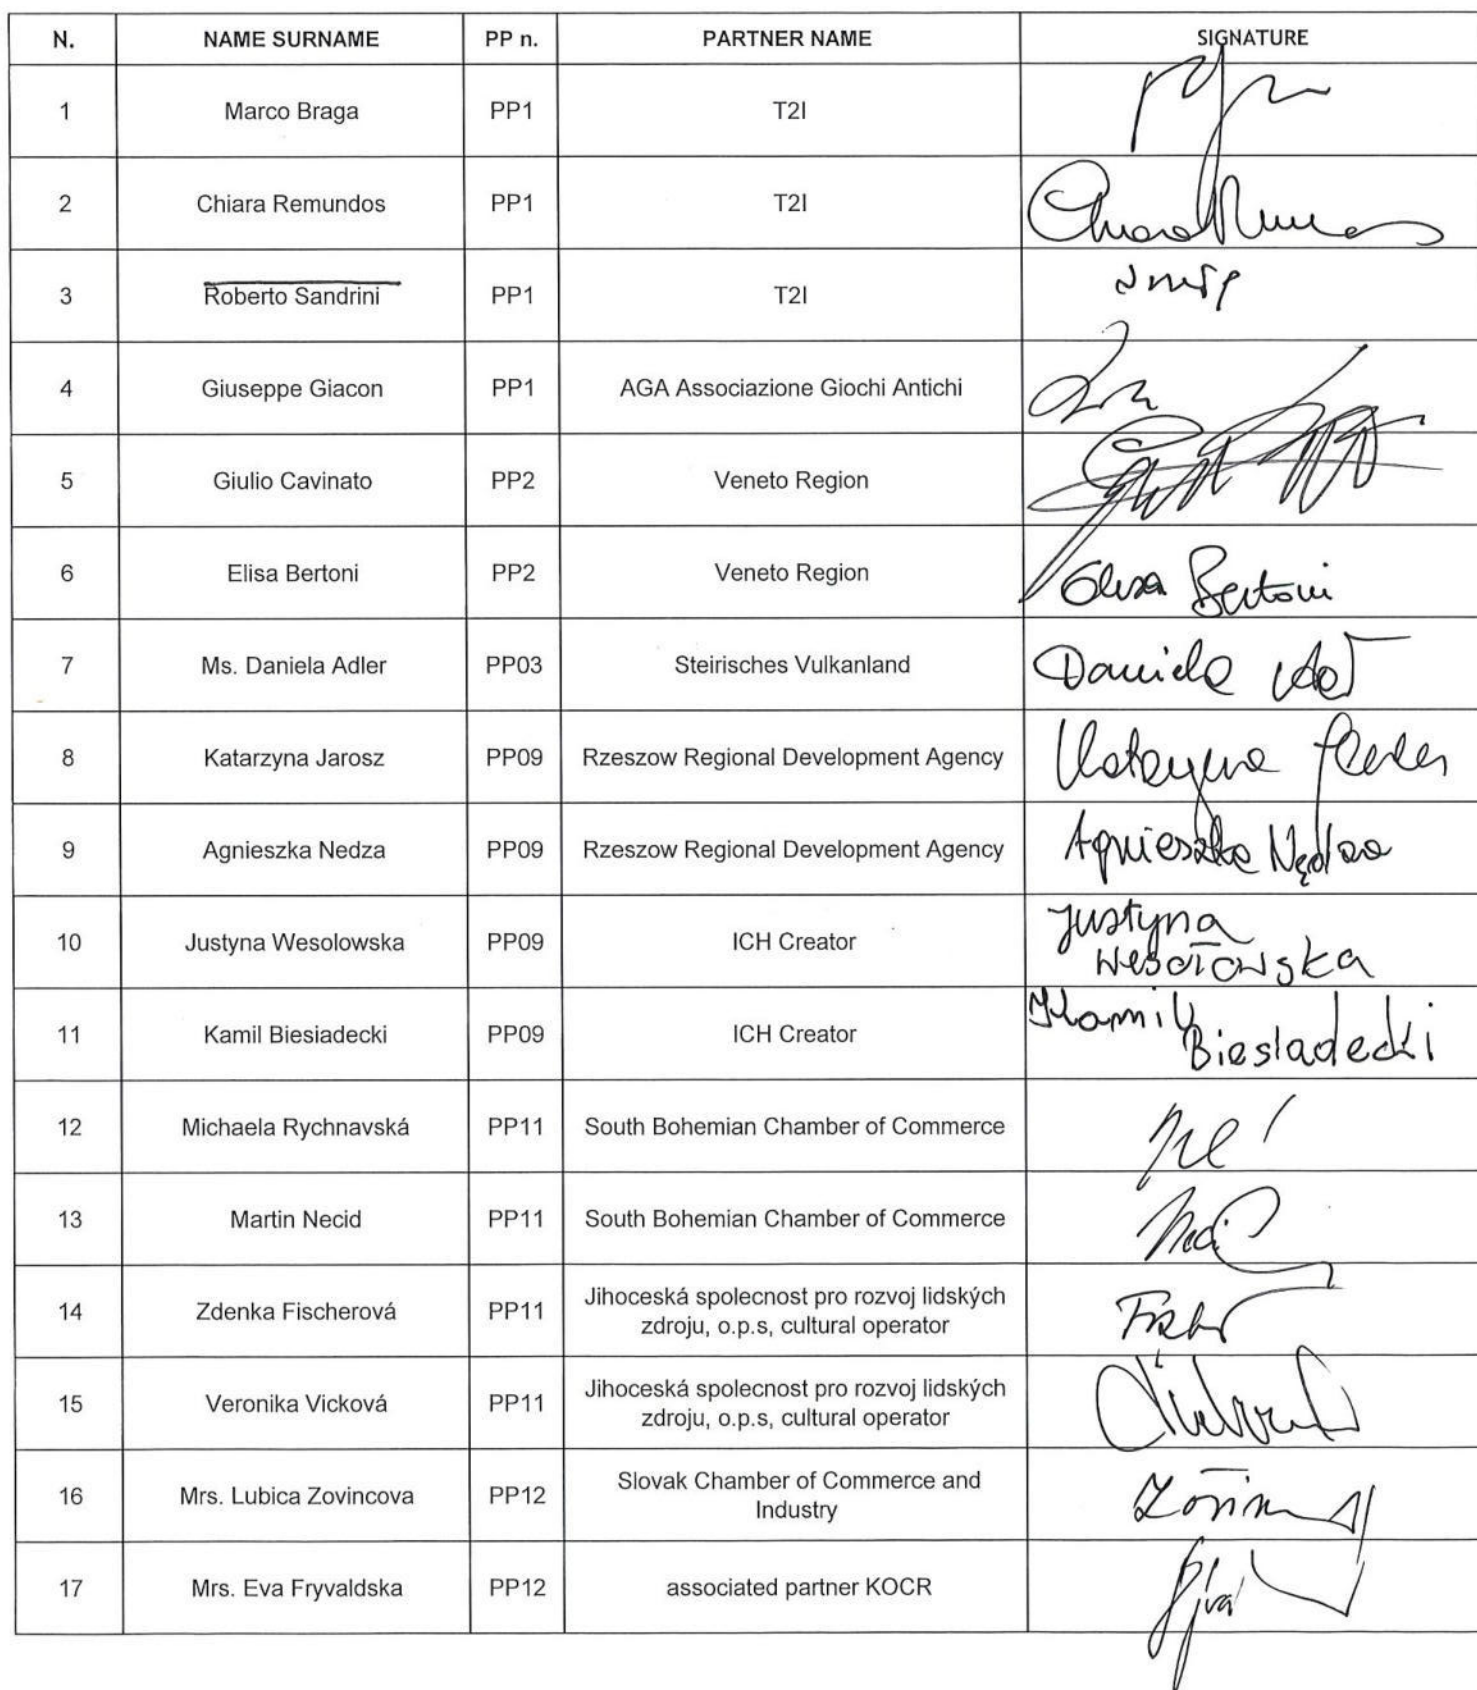 N. NAME SURNAME PP n. PARTNER NAME SIGNATURE
1 Marco Braga PP1 T2I
2 Chiara Remundos PP1 T2I
3 Roberto Sandrini PP1 T2I
4 Giuseppe Giacon PP1 AGA Associazione Giochi Antichi
5 Giulio Cavinato PP2 Veneto Region
6 Elisa Bertoni PP2 Veneto Region Elisa Bertoni
7 Ms. Daniela Adler PP03 Steirisches Vulkanland Daniela
8 Katarzyna Jarosz PP09 Rzeszow Regional Development Agency Katarzyna
9 Agnieszka Nedza PP09 Rzeszow Regional Development Agency Agnieszka Nędza
10 Justyna Wesolowska PP09 ICH Creator Justyna
Wesołowska
11 Kamil Biesiadecki PP09 ICH Creator Kamil
Biesiadecki
12 Michaela Rychnavská PP11 South Bohemian Chamber of Commerce
13 Martin Necid PP11 South Bohemian Chamber of Commerce
14 Zdenka Fischerová PP11 Jihoceská spolecnost pro rozvoj lidských
zdroju, o.p.s, cultural operator
15 Veronika Vicková PP11 Jihoceská spolecnost pro rozvoj lidských
zdroju, o.p.s, cultural operator
16 Mrs. Lubica Zovincova PP12 Slovak Chamber of Commerce and
Industry
17 Mrs. Eva Fryvaldska PP12 associated partner KOCR